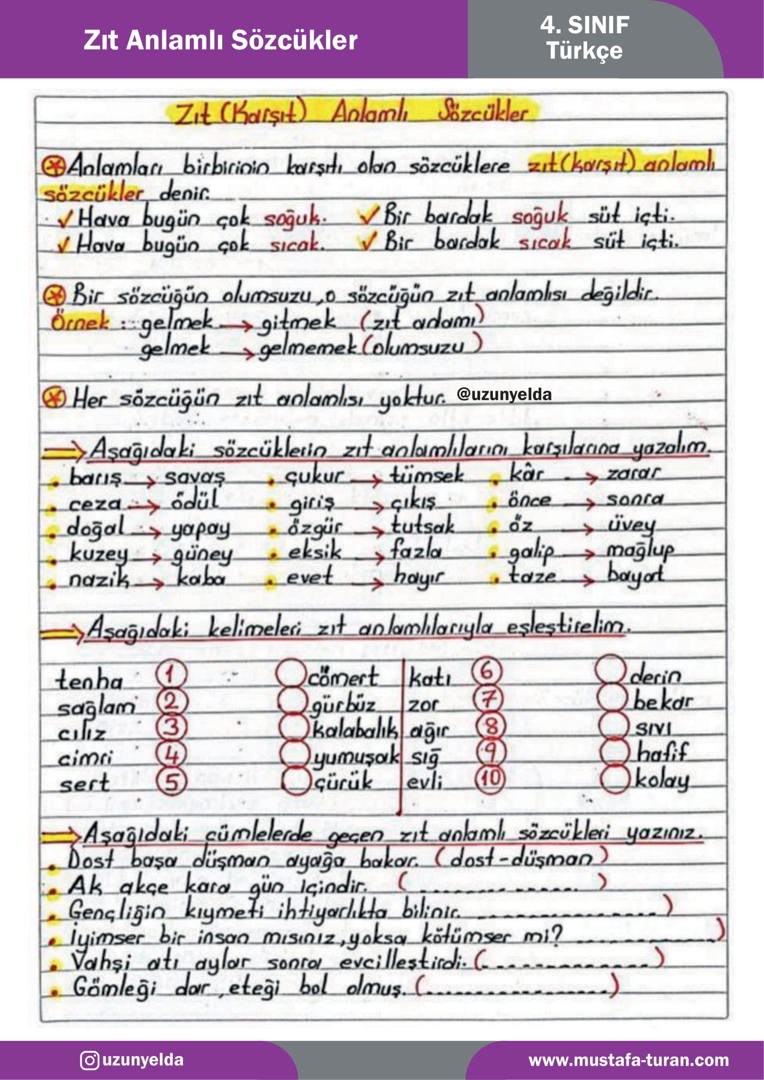 Zıt Anlamlı Sözcükler
4. SINIF
Türkçe
Zıt (Karşıt) Anlamlı Sözcükler
Anlamları birbirinin karşıtı olan sözcüklere zıt(karşıt) anlamlı
sözcükler denir.
✓ Hava bugün çok soğuk. ✓ Bir bardak soğuk süt içti.
✓ Hava bugün çok sıcak. ✓ Bir bardak sıcak süt içti.
Bir sözcüğün olumsuzu, o sözcüğün zıt anlamlısı değildir.
Örnek : gelmek → gitmek (zıt anlamı)
gelmek → gelmemek (olumsuzu)
Her sözcüğün zıt anlamlısı yoktur. @uzunyelda
⇒ Aşağıdaki sözcüklerin zıt anlamlılarını karşılarına yazalım.
• barış → savaş • çukur → tümsek • kâr → zarar
• ceza → ödül • giriş → çıkış • önce → sonra
• doğal → yapay • özgür → tutsak • öz → üvey
• kuzey → güney • eksik → fazla • galip → mağlup
• nazik → kaba • evet → hayır • taze → bayat
⇒ Aşağıdaki kelimeleri zıt anlamlılarıyla eşleştirelim.
tenha 1 cömert katı 6 derin
sağlam 2 gürbüz zor 7 bekar
cılız 3 kalabalık ağır 8 sıvı
cimri 4 yumuşak sığ 9 hafif
sert 5 çürük evli 10 kolay
⇒ Aşağıdaki cümlelerde geçen zıt anlamlı sözcükleri yazınız.
• Dost başa düşman ayağa bakar. (dost-düşman)
• Ak akçe kara gün içindir. (...............)
• Gençliğin kıymeti ihtiyarlıkta bilinir. ...............)
• İyimser bir insan mısınız, yoksa kötümser mi? ...............)
• Vahşi atı aylar sonra evcilleştirdi. (...............)
• Gömleği dar, eteği bol olmuş. (...............)
uzunyelda
www.mustafa-turan.com